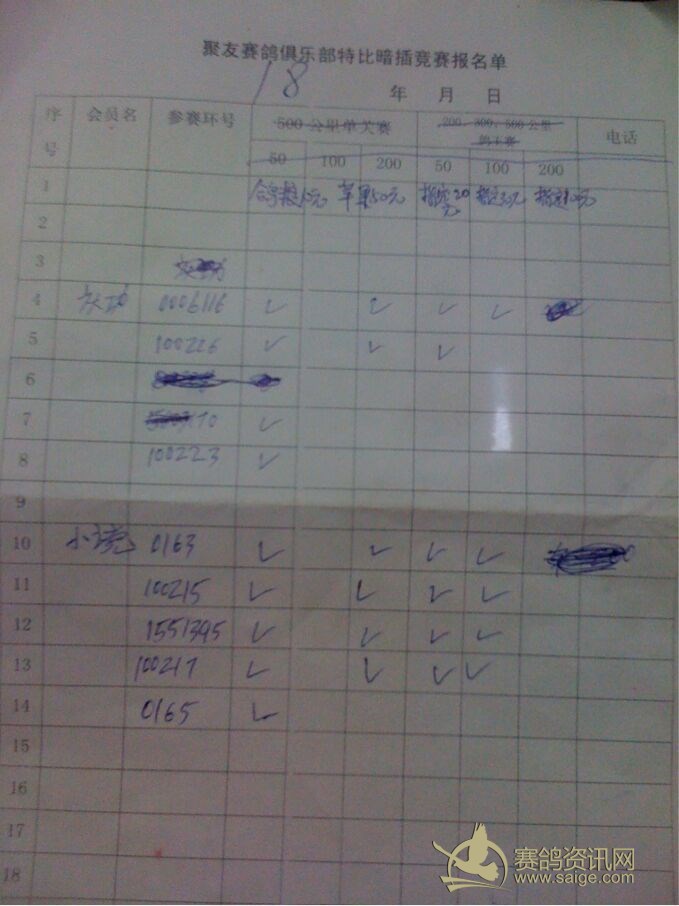 聚友赛鸽俱乐部特比暗插竞赛报名单
18 年 月 日
序号 会员名 参赛环号 500公里单关赛 200、300、500公里鸽王赛 电话
50 100 200 50 100 200
1 元 单 50元 指定20元 指定30元 指定100元
2
3
4 0006116 ✓ ✓ ✓ ✓
5 100226 ✓ ✓ ✓
6
7 170 ✓
8 100223 ✓
9
10 小 0163 ✓ ✓ ✓ ✓
11 100215 ✓ ✓ ✓ ✓
12 1551395 ✓ ✓ ✓ ✓
13 100217 ✓ ✓ ✓ ✓
14 0165 ✓
15
16
17
18
赛鸽资讯网
www.saige.com